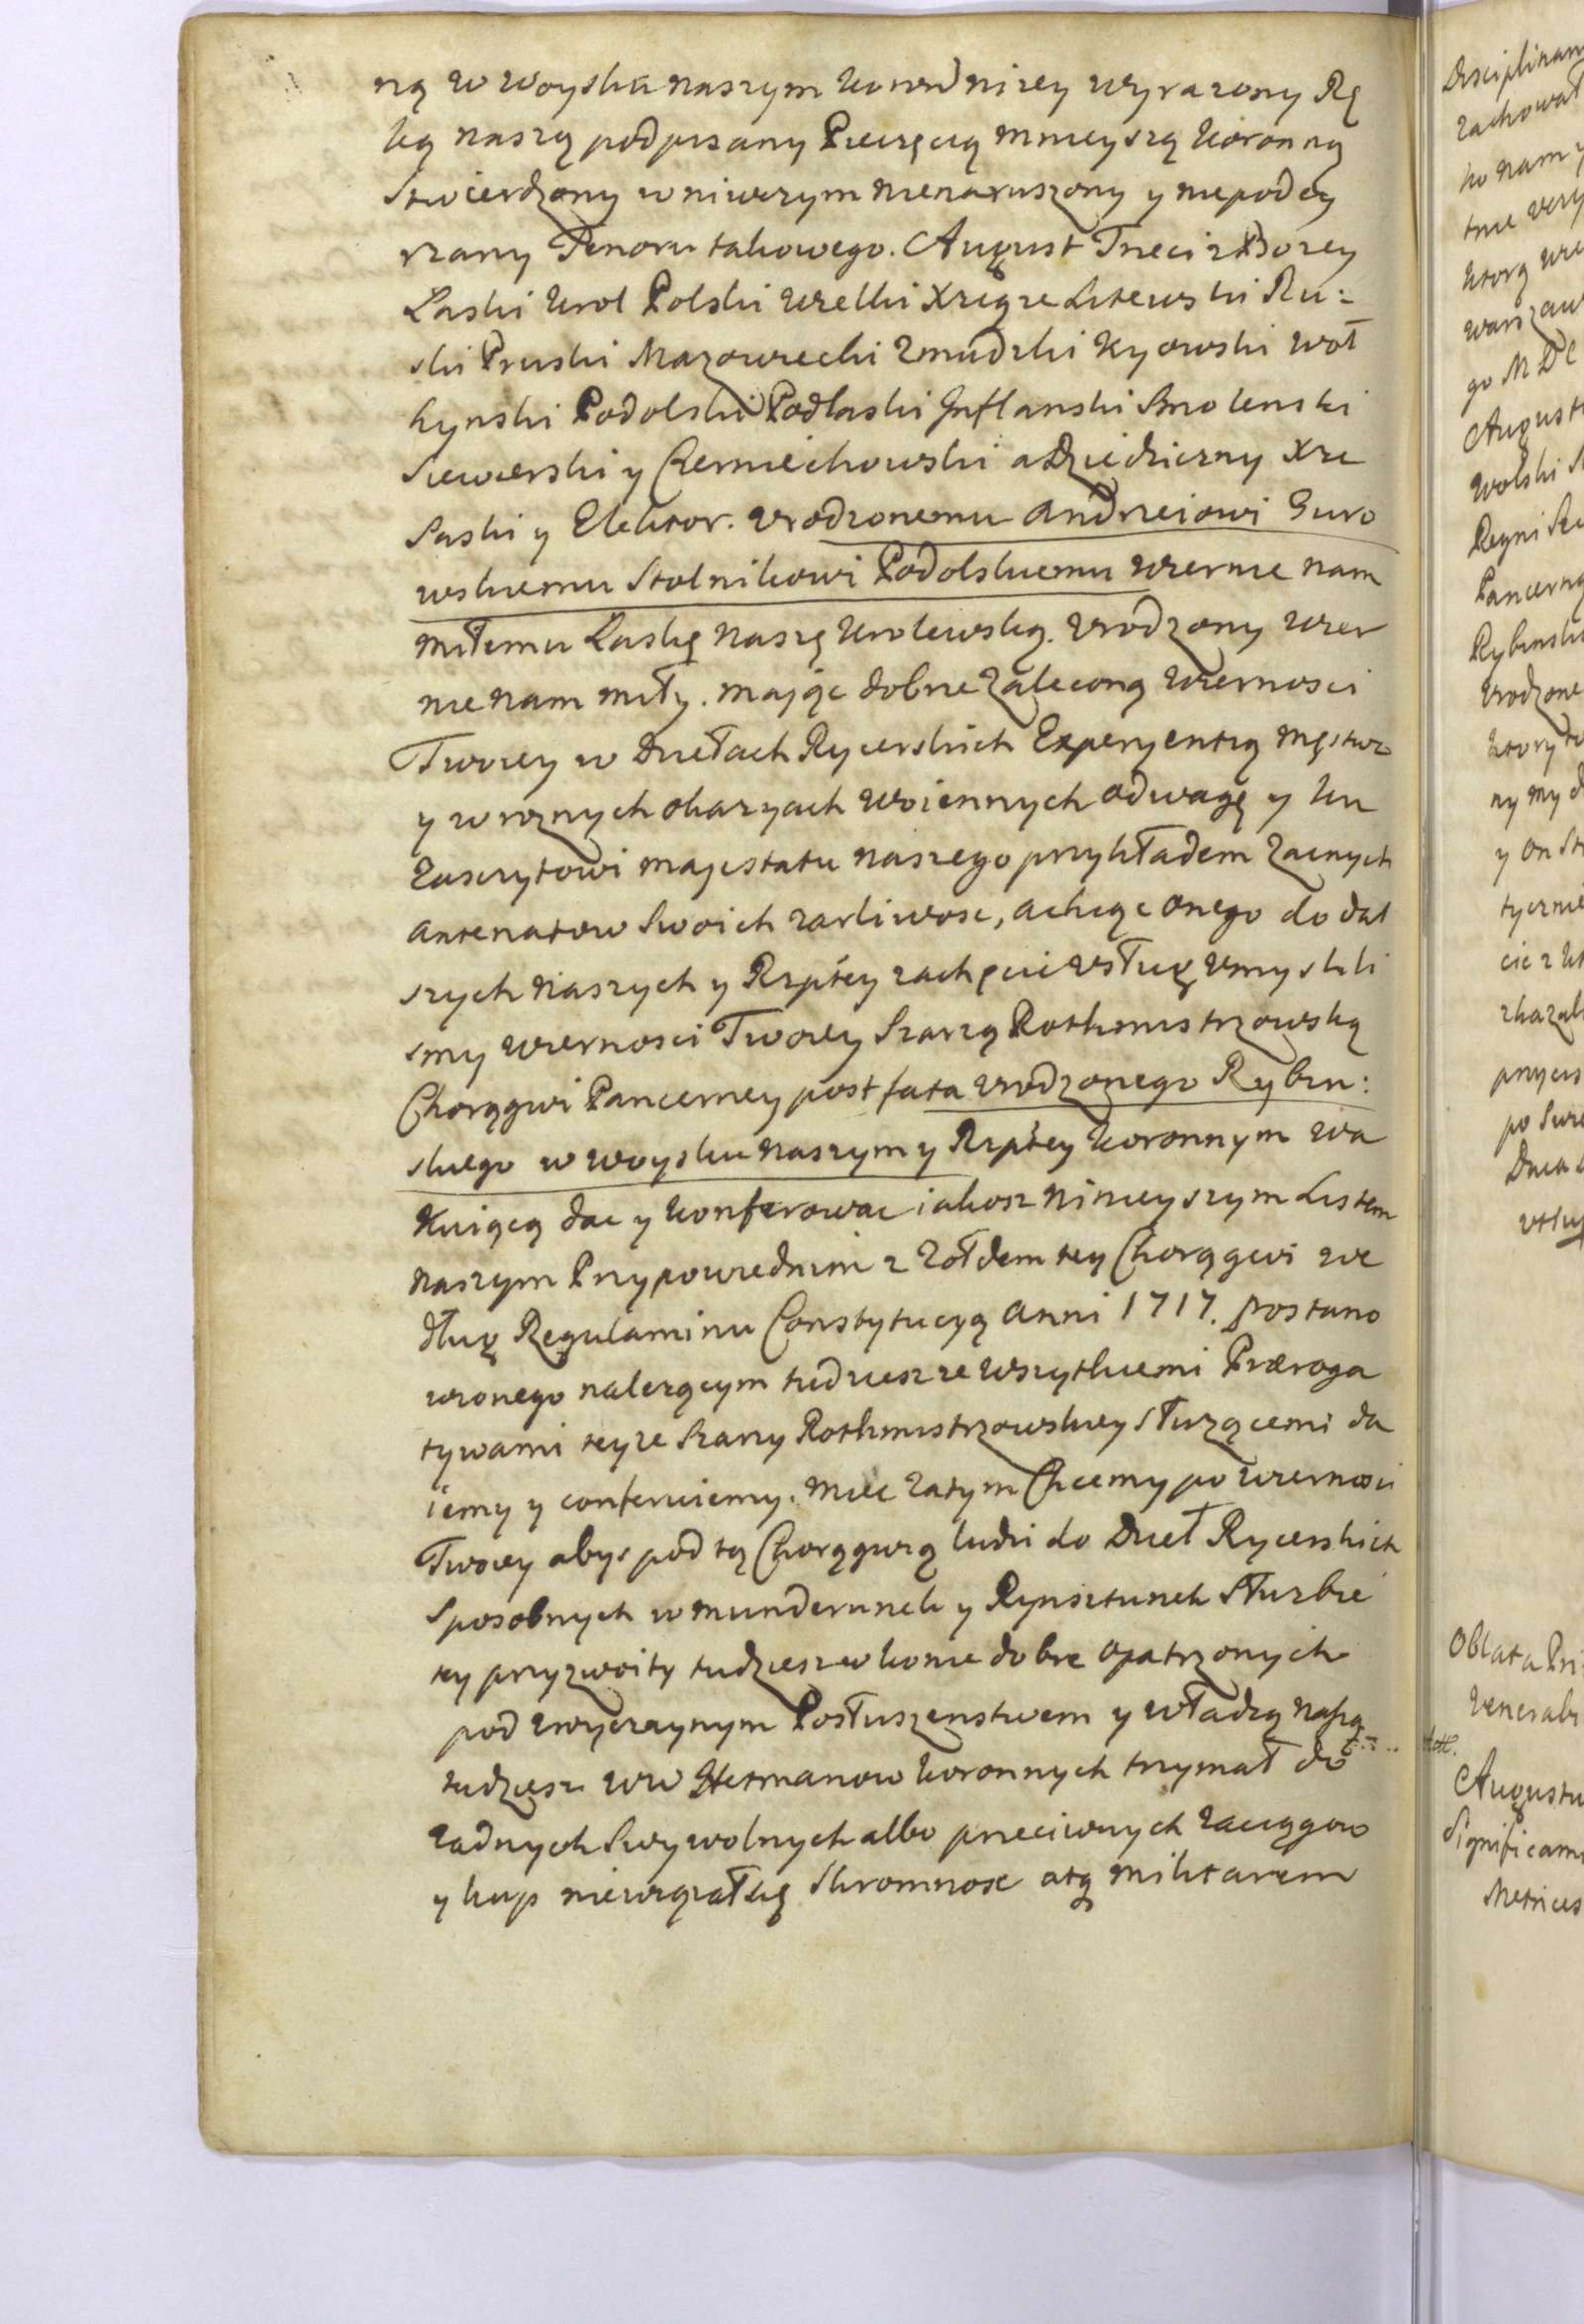 ną w Woysku naszym kowrdnizey wyrazony Rę
ką naszą podpisany Pieczęcią mnieyszą Koronną
Stwierdzony w niwczym nienaruszony y niepodey
rzany Tenoru takowego. August Trzeci z Bozey
Łaski Krol Polski Wielki Xiąze Litewski Ru:
ski Pruski Mazowiecki Zmudzki Kyowski Woł
hynski Podolski Podlaski Inflanski Smolenski
Siewierski y Czerniechowski a Dziedziczny Xże
Saski y Elektor. Urodzonemu Andrzeiowi Guro
wskiemu Stolnikowi Podolskiemu Wiernie nam
miłemu Łaskę naszę Krolewską. Urodzony Wier
nie nam miły. Maiąc dobrze zaleconą Wiernosci
Twoiey w Dziełach Rycerskich Experyentią Męstwo
y w roznych okazyach Woiennych odwagę y ku
Zaszczytowi Majestatu naszego przykładem Zacnych
Antenatow Swoich zarliwosc, a chcąc onego do dal
szych naszych y Rzptey zachęcic Usług Umyslili
smy Wiernosci Twoiey Szarzą Rothmistrzowską
Chorągwi Pancerney post fata Urodzonego Rybin:
skiego w Woysku naszym y Rzptey Koronnym Wa
kuiącą dac y konferowac iakosz Ninieyszym Listem
naszym Przypowiednim z Zołdem tey Chorągwi we
dług Regulaminu Constytucyą Anni 1717. postano
wionego nalezącym tudziesz ze Wszytkiemi Præroga
tywami teyze Szarzy Rothmistrzowskiey słuzącemi da
iemy y conferuiemy. Miec Zatym Chcemy po Wiernosci
Twoiey abys pod tą Chorągwią ludzi do Dzieł Rycerskich
Sposobnych w munderunek y Rynsztunek Słuzbie
tey przyzwoity tudziesz w konie dobrze Opatrzonych
pod Zwyczaynym Posłuszenstwem y Władzą naszą
tudziesz WW Hetmanow Koronnych trzymał do
Zadnych Swywolnych albo przeciwnych Zaciągow
y kup niewiązał się Skromnosc atq militarem